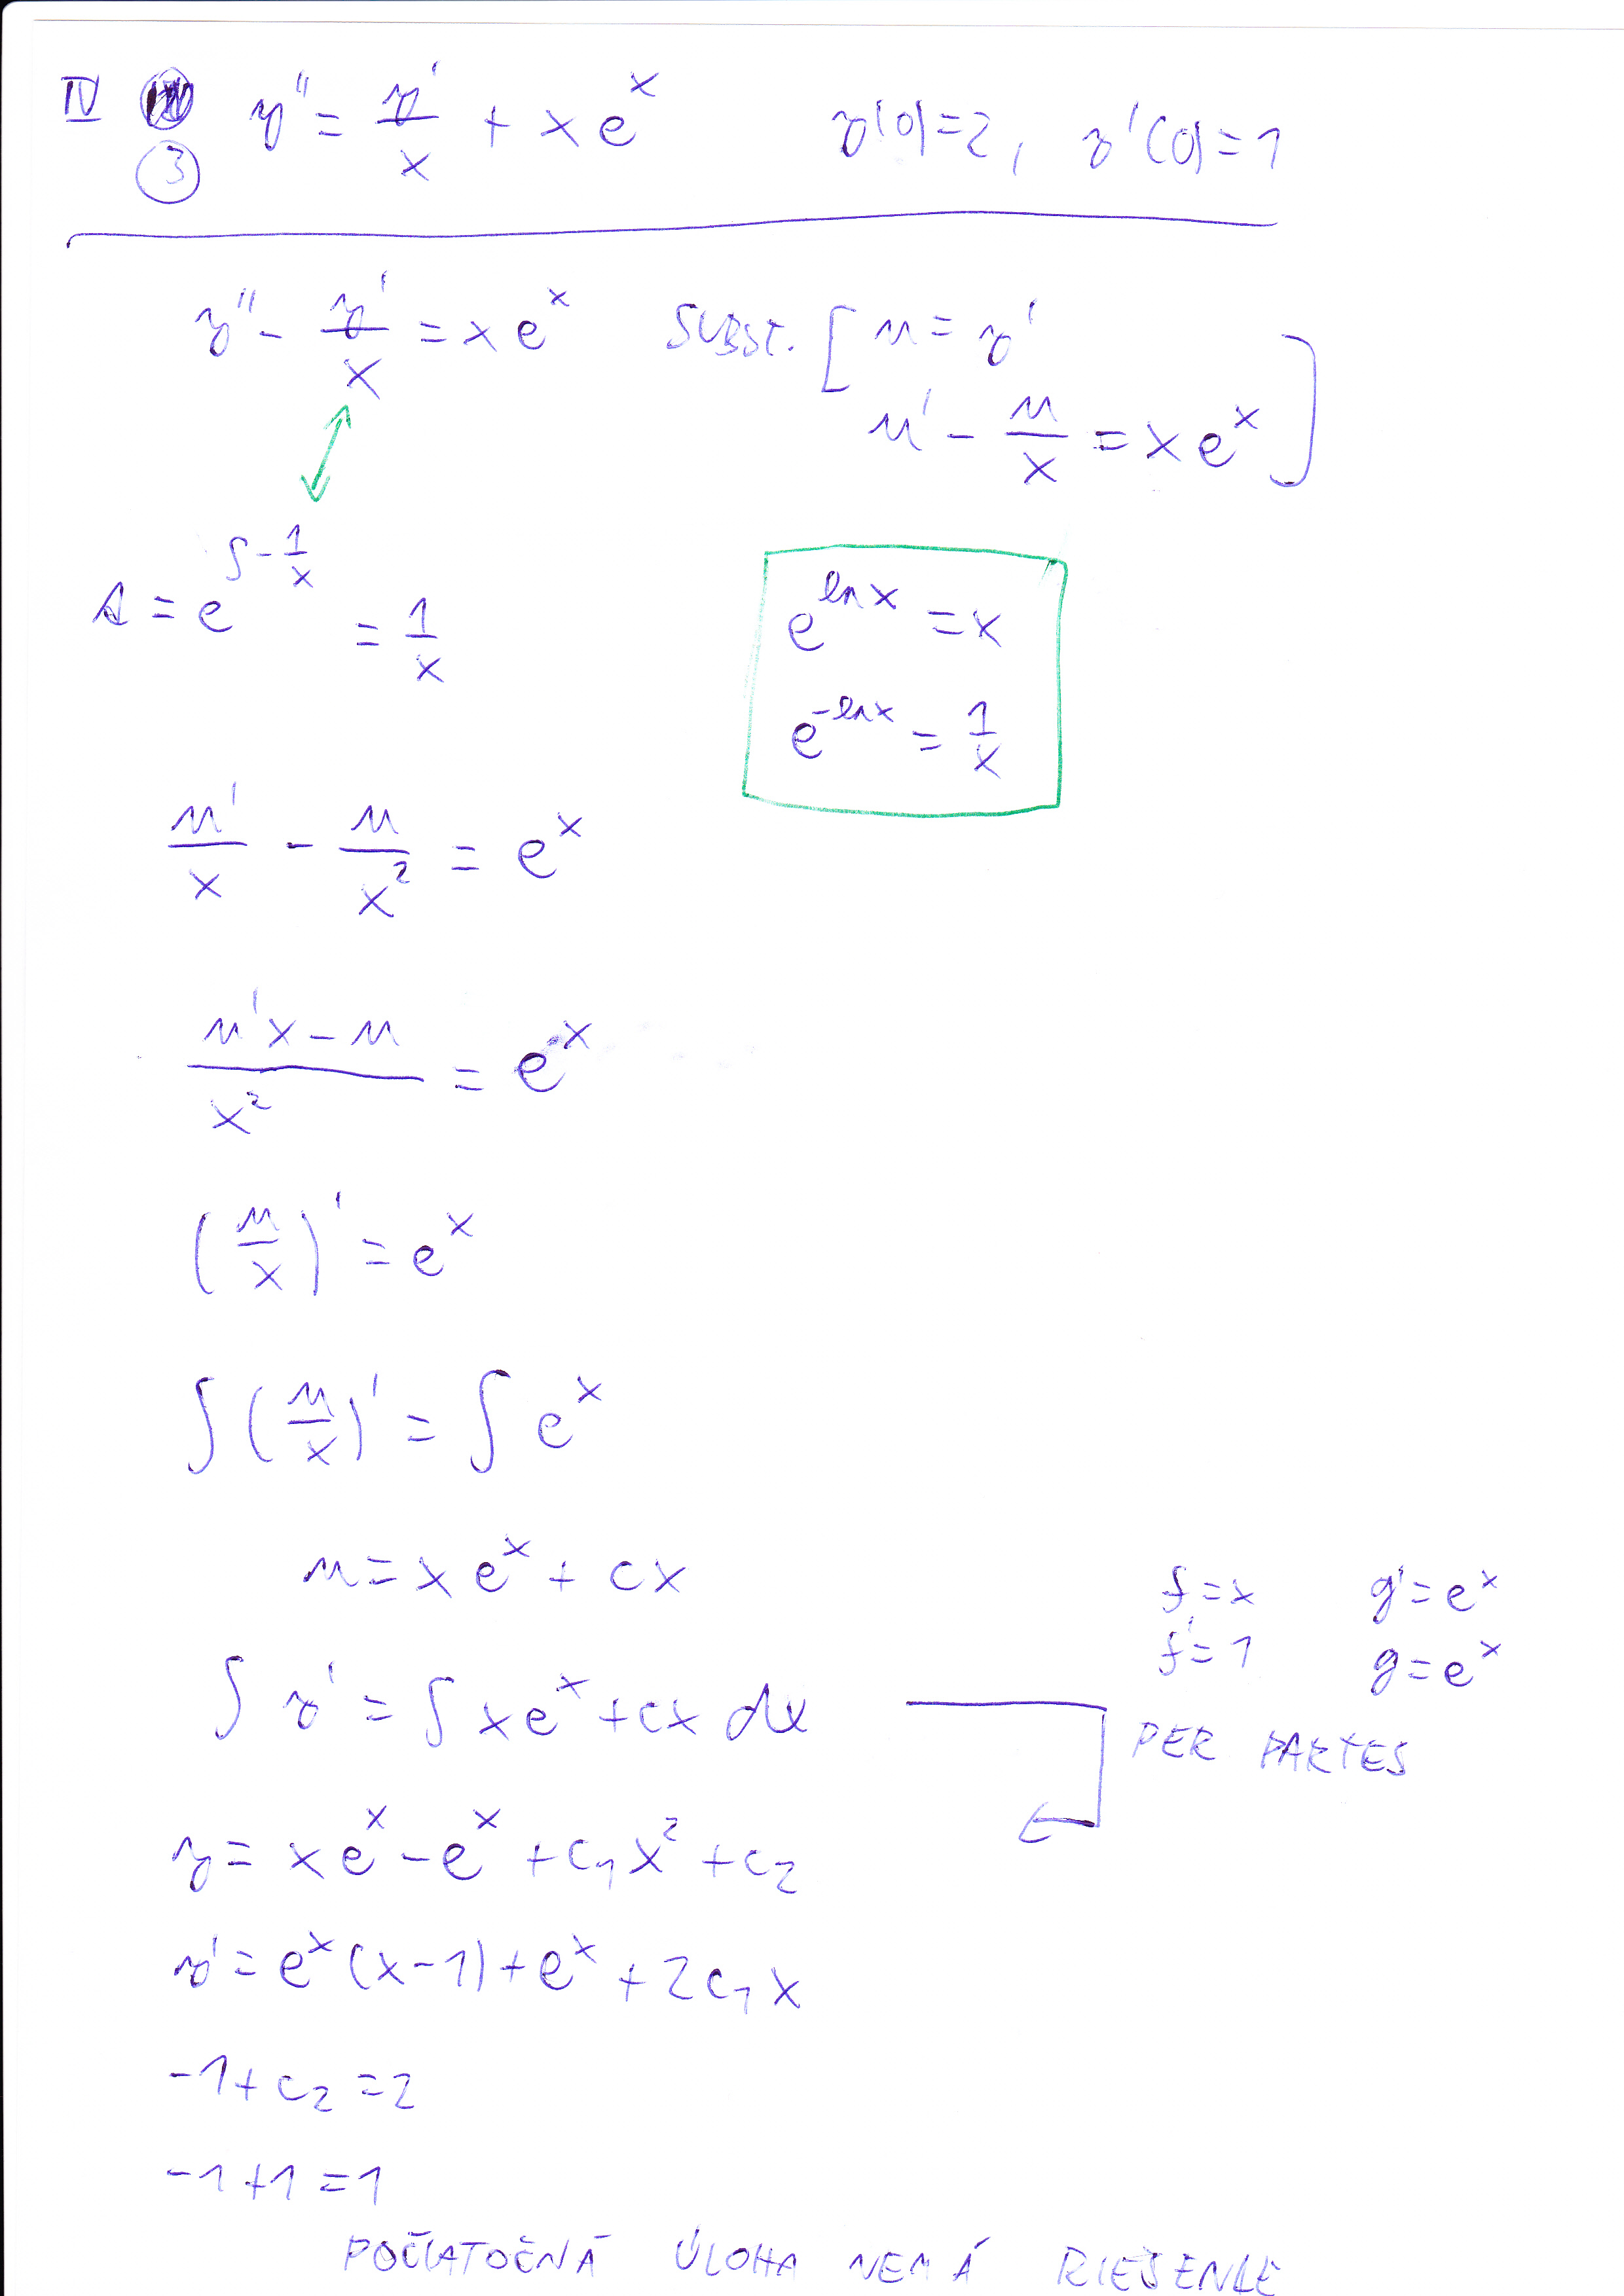 IV ③ y'' = y'/x + x e^x y(0)=2, y'(0)=1
y'' - y'/x = x e^x SUBST. [ u = y'
u' - u/x = x e^x ]
A = e^{∫ -1/x} = 1/x
e^{ln x} = x
e^{-ln x} = 1/x
u'/x - u/x² = e^x
(u'x - u)/x² = e^x
(u/x)' = e^x
∫ (u/x)' = ∫ e^x
u = x e^x + cx
f = x g' = e^x
f' = 1 g = e^x
∫ y' = ∫ x e^x + cx dx
PER PARTES
y = x e^x - e^x + c₁x² + c₂
y' = e^x (x-1) + e^x + 2c₁x
-1 + c₂ = 2
-1 + 1 = 1
POČIATOČNÁ ÚLOHA NEMÁ RIEŠENIE